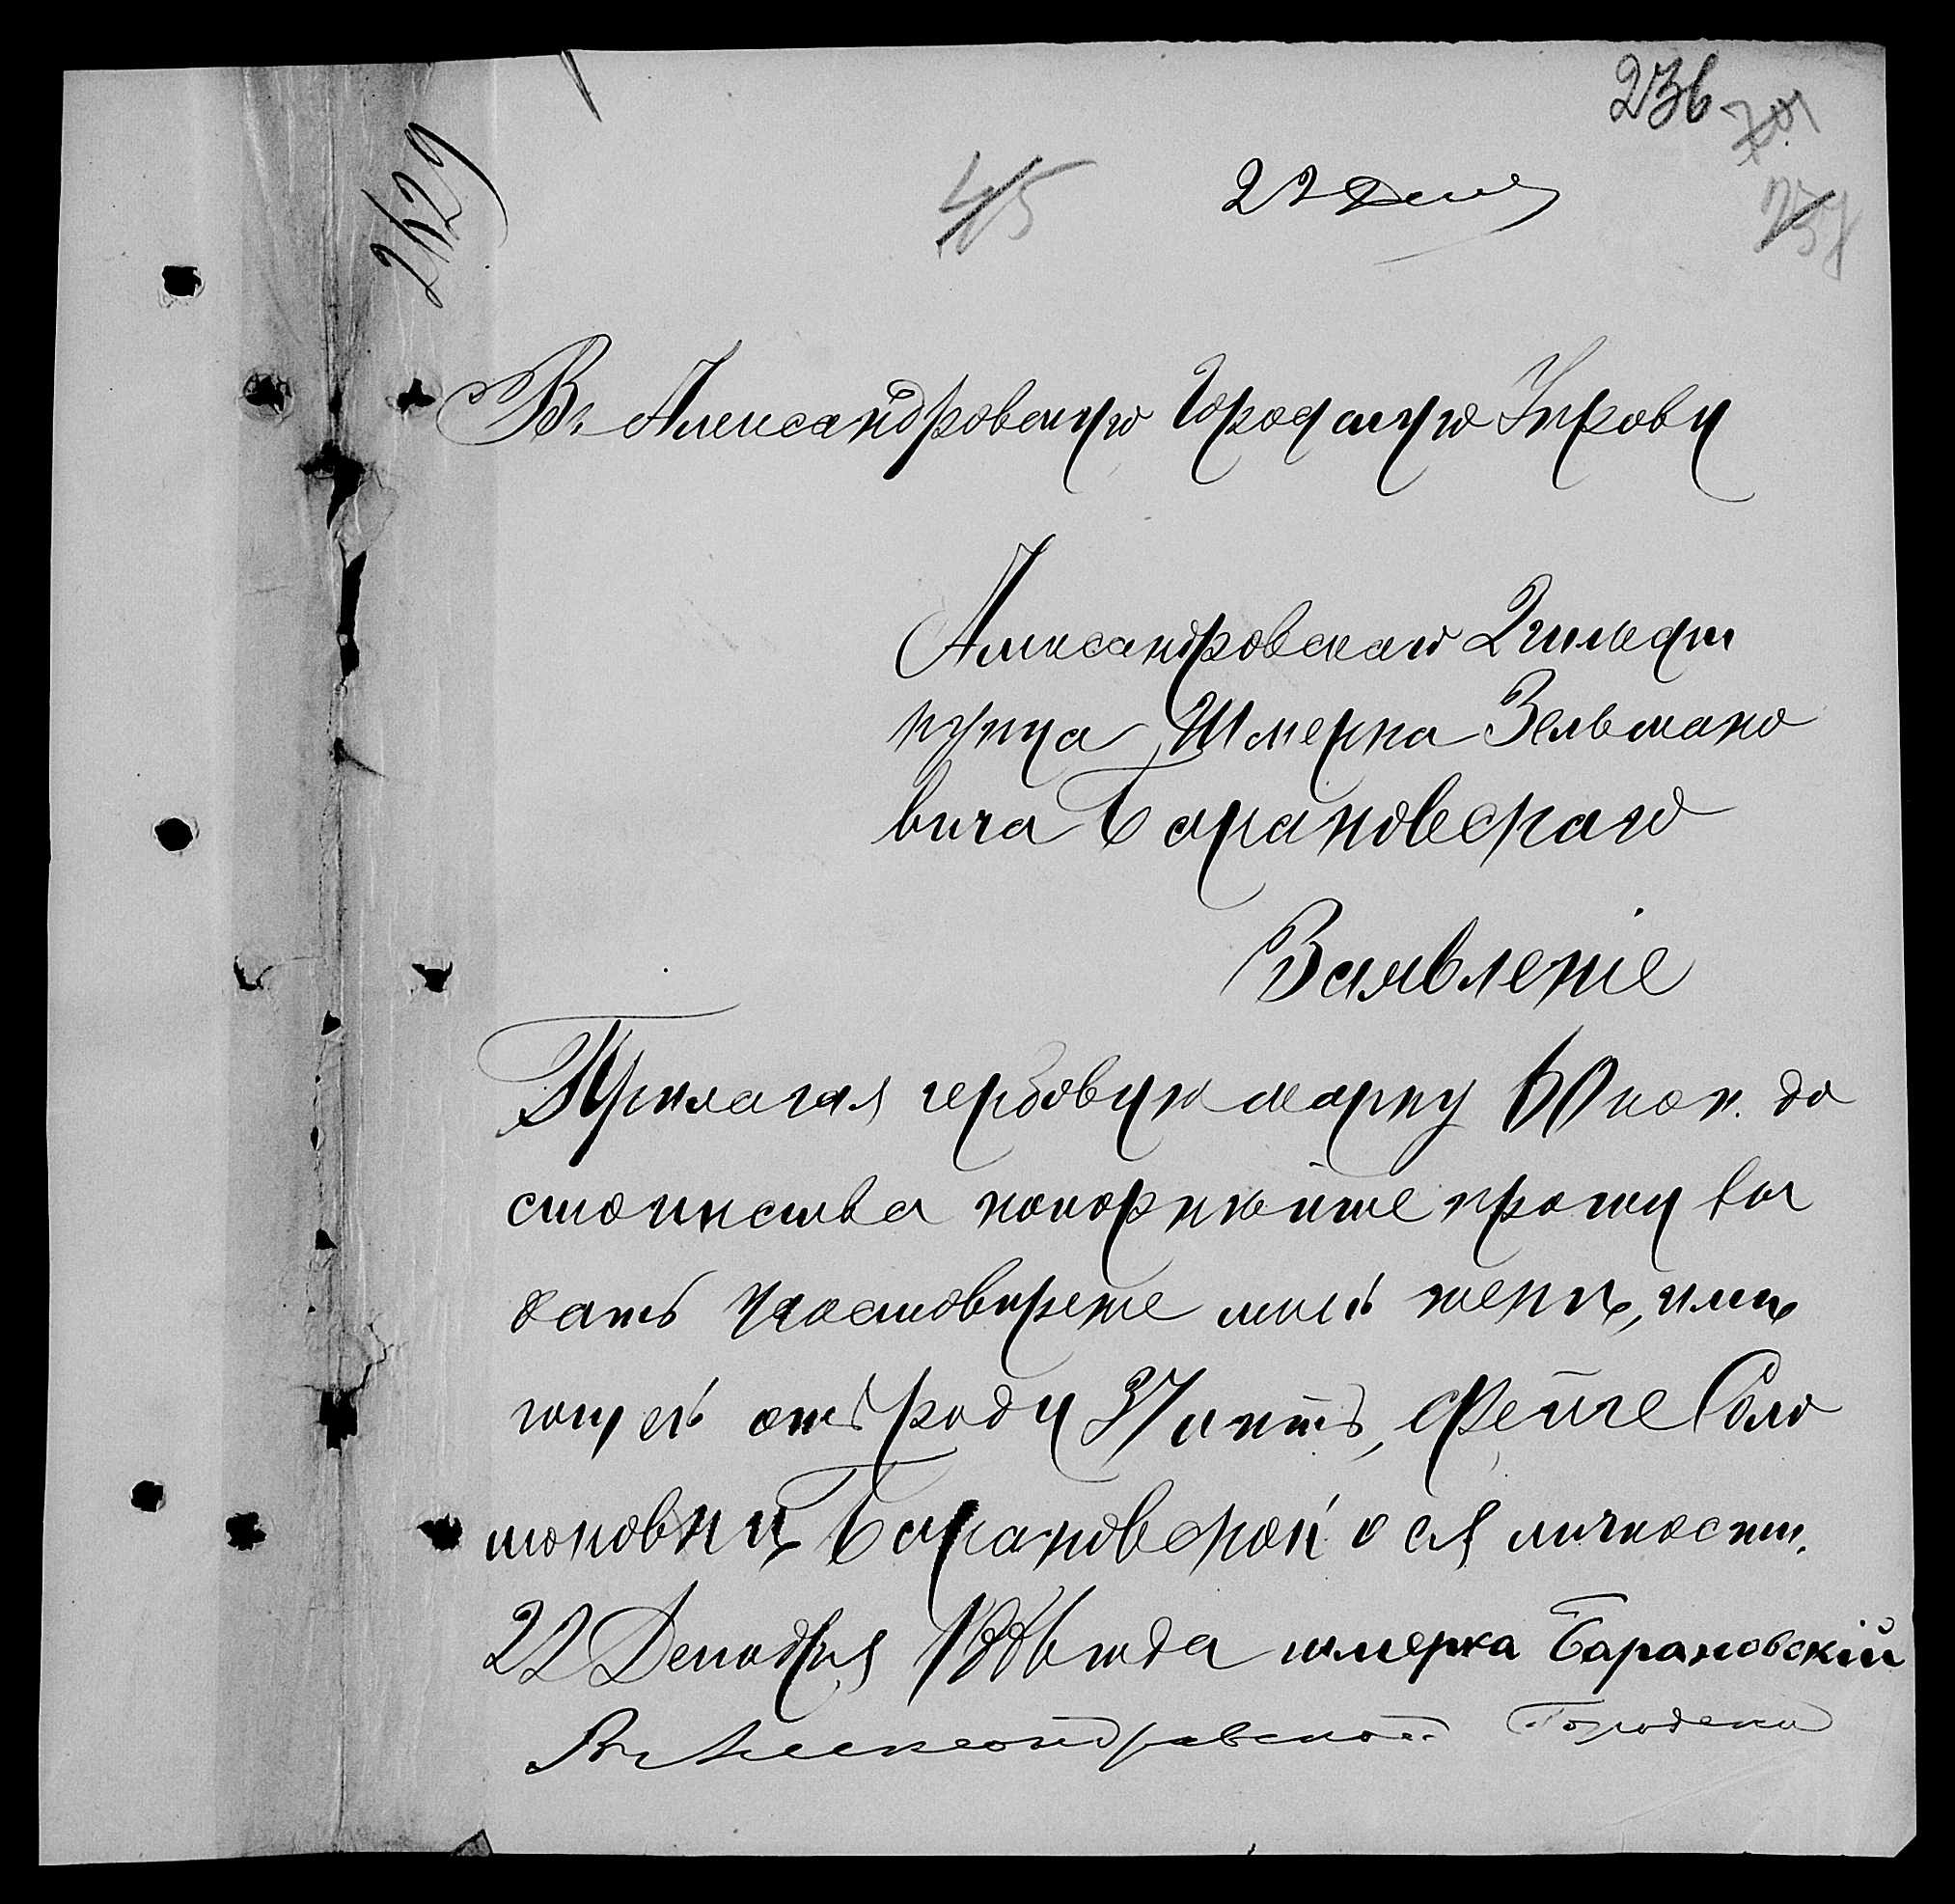 236
2629
45
22 Дек
Въ Александровскую Городскую Управу
Александровскаго 2 гильдіи
купца Шмерка Зельмано
вича Барановскаго
Заявленіе
Прилагая гербовую марку 60 коп. до
стоинства покорнѣйше прошу вы
дать удостовѣреніе моей женѣ, имѣ
ющей отъ роду 37 лѣтъ, Фейге Соло
моновнѣ Барановской о ея личности.
22 Декабря 1886 года шмерка Барановскій
Въ Александровской Городской